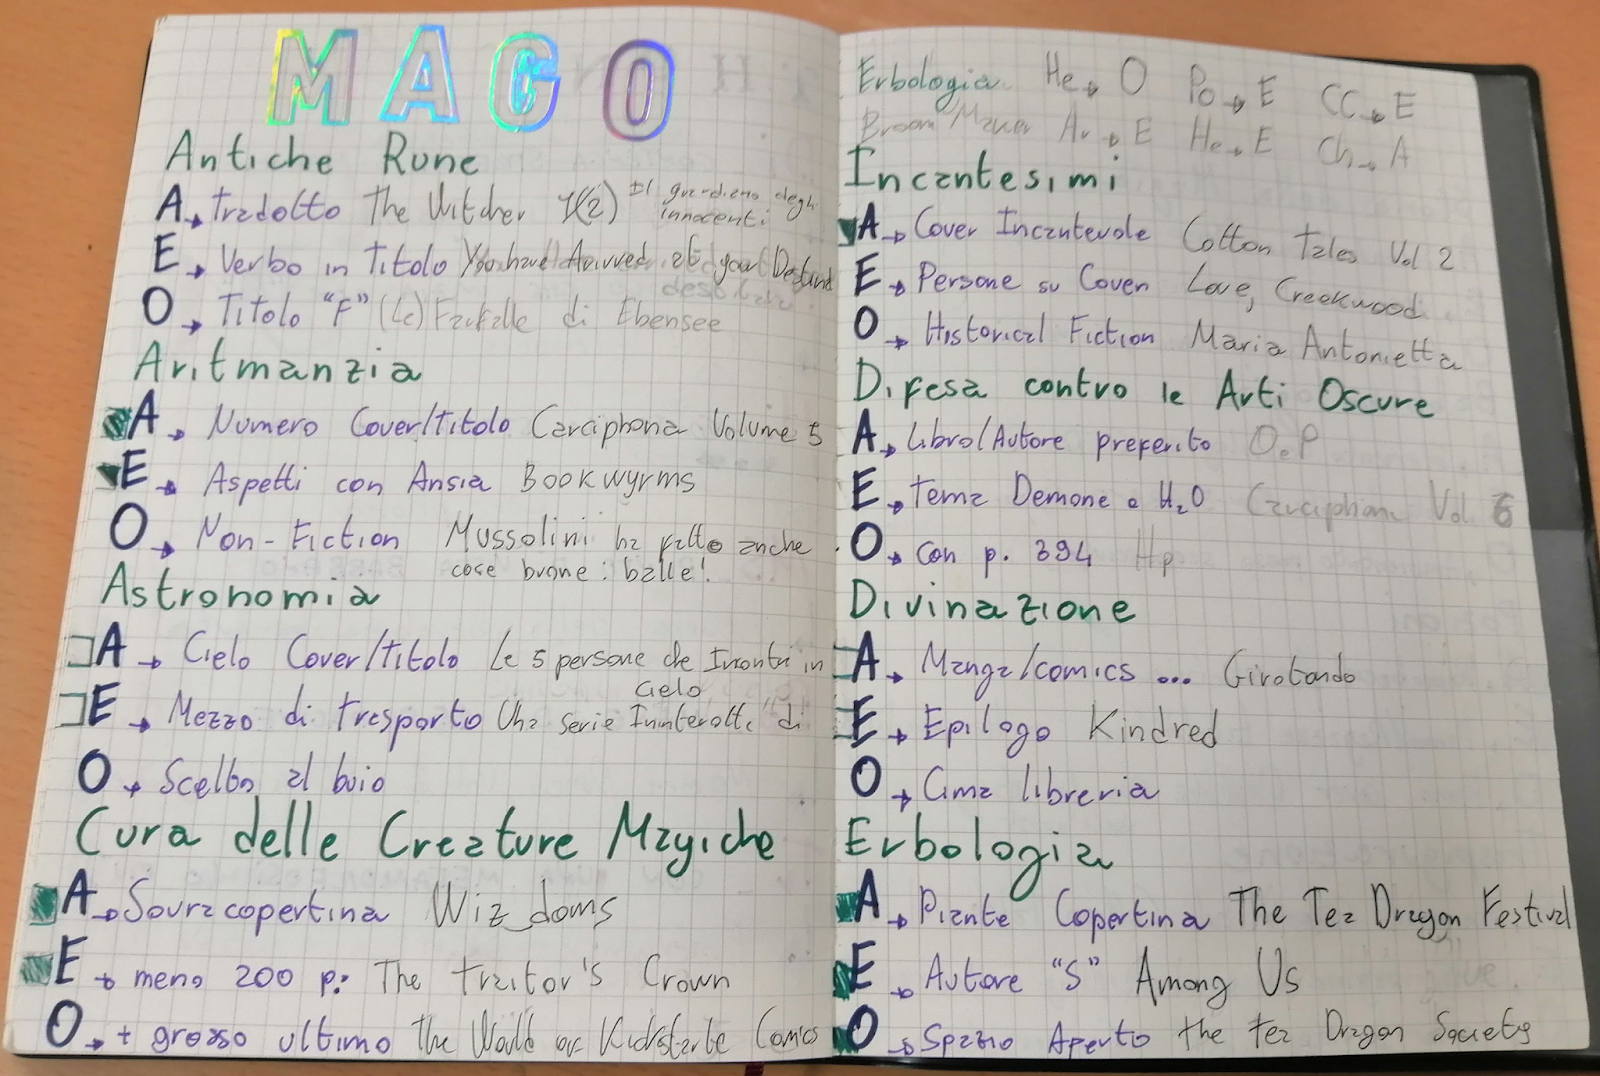 MAGO
Antiche Rune
A → Tradotto The Witcher 1(2) Il guardiano degli
innocenti
E → Verbo in Titolo You have Arrived at your
O → Titolo "F" (Le) Farfalle di Ebensee
Aritmanzia
A → Numero Cover/Titolo Carciphona Volume 5
E → Aspetti con Ansia Bookwyrms
O → Non-Fiction Mussolini ha fatto anche
cose buone: balle!
Astronomia
A → Cielo Cover/Titolo Le 5 persone che Incontri in
Cielo
E → Mezzo di Trasporto Una serie Ininterotta di
O → Scelto al buio
Cura delle Creature Magiche
A → Sovracopertina Wiz_doms
E → meno 200 p: The Traitor's Crown
O → + grosso ultimo The World of Comics
Erbologia He → O Po → E CC → E
Broom Maker Ar → E He → E Ch → A
Incantesimi
A → Cover Incantevole Cotton Tales Vol 2
E → Persone su Cover Love, Creekwood
O → Historical Fiction Maria Antonietta
Difesa contro le Arti Oscure
A → Libro/Autore preferito O.P
E → Tema Demone o H₂O Carciphona Vol. 6
O → Con p. 394 Hp
Divinazione
A → Manga/comics ... Girotondo
E → Epilogo Kindred
O → Cima libreria
Erbologia
A → Piante Copertina The Tea Dragon Festival
E → Autore "S" Among Us
O → Spazio Aperto The Tea Dragon Society